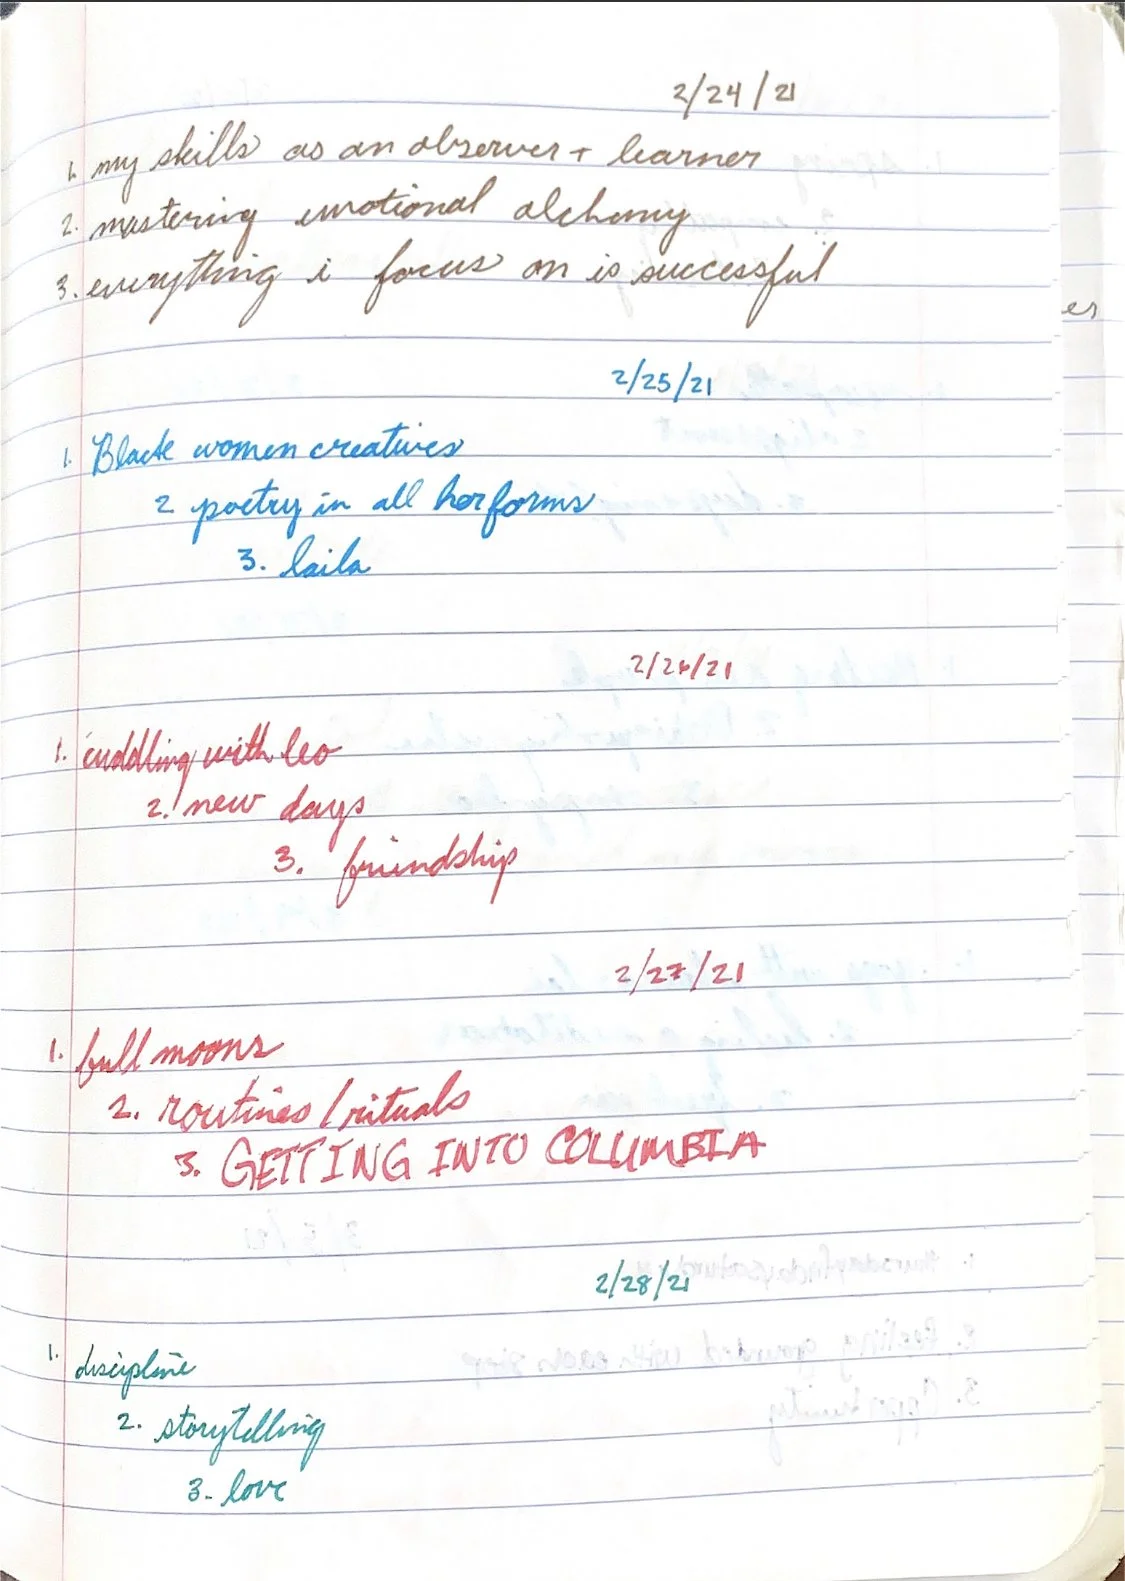 2/24/21
1. my skills as an observer + learner
2. mastering emotional alchemy
3. everything i focus on is successful
es
2/25/21
1. Black women creatives
2 poetry in all her forms
3. laila
2/26/21
1. cuddling with leo
2. new days
3. friendship
2/27/21
1. full moons
2. routines/rituals
3. GETTING INTO COLUMBIA
2/28/21
1. discipline
2. storytelling
3. love